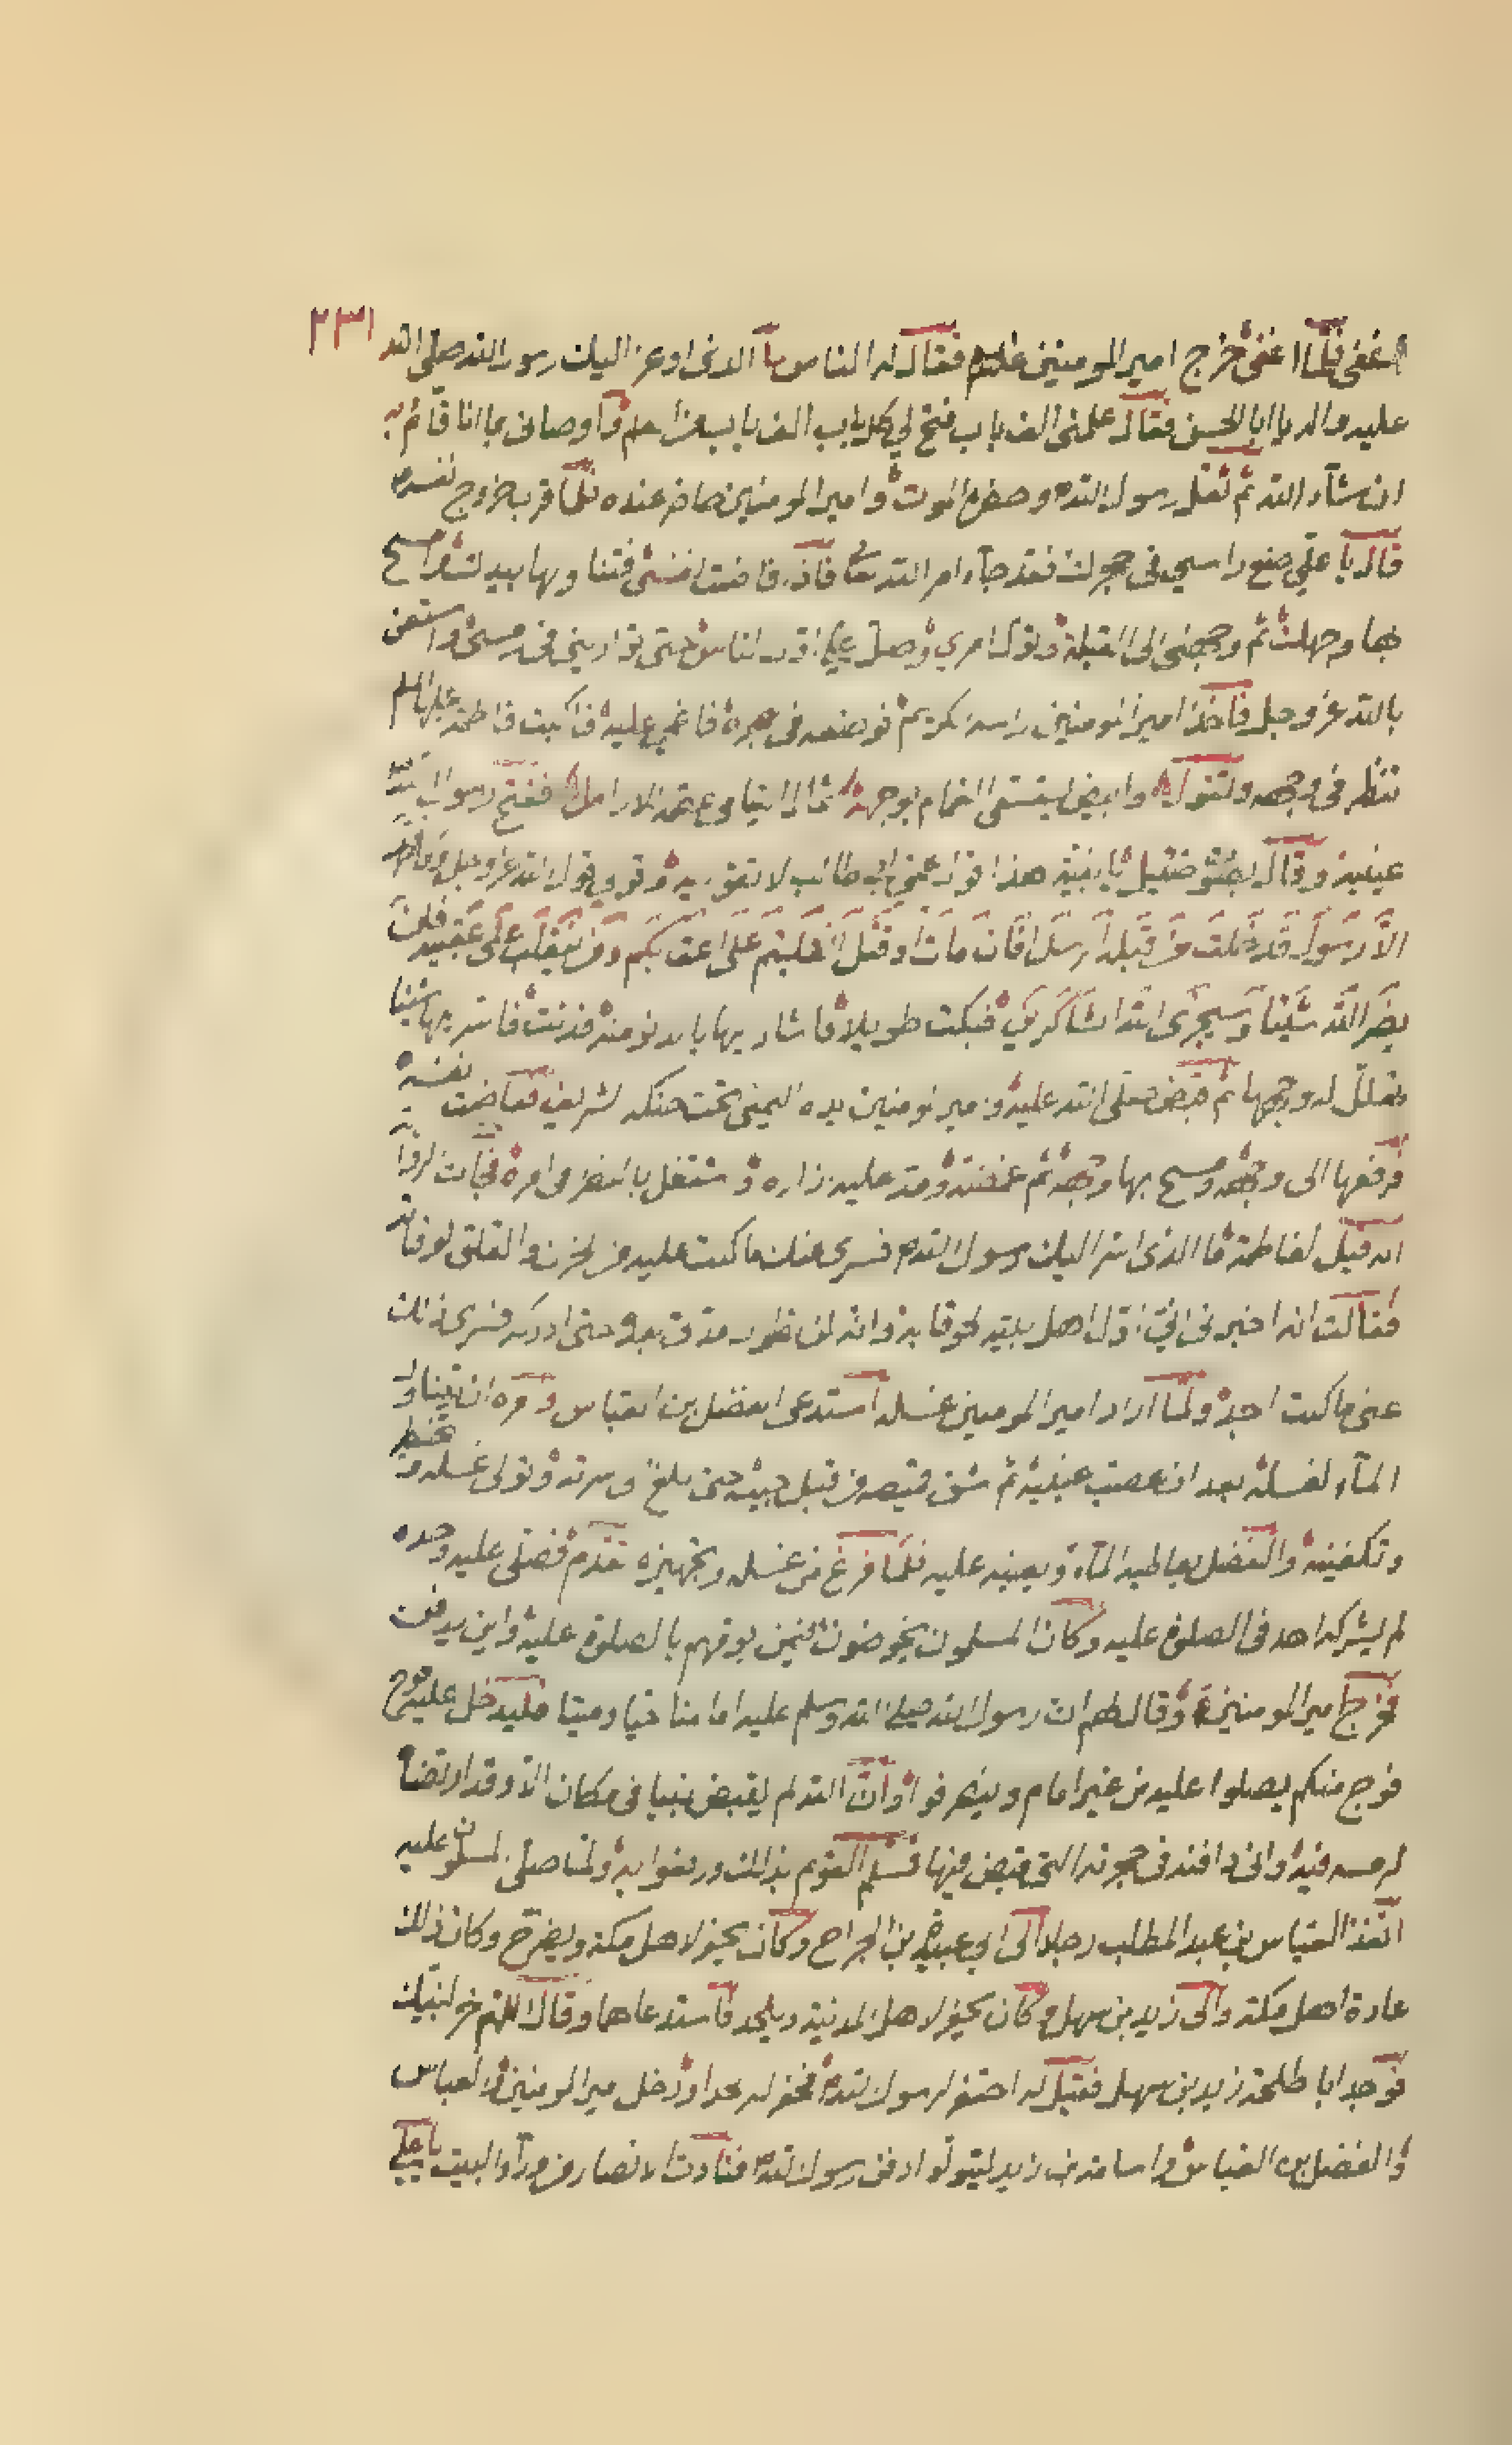 ٢٣١
اغفى فلما اغفى خرج امير المومنين عليلم فقال له الناس ما الذى اوعز اليك رسول الله صلى الله
عليه واله يا ابا الحسن فقال علمنى الف باب فتح لي كل باب الف باب واوصانى بما انا قائم به
ان شآء الله ثم ثقل رسول الله وحضره الموت وامير المومنين حاضر عنده فلما قرب خروج نفسه
قال يا على ضع راسي فى حجرك فقد جآء امر الله تعا فاذا فاضت نفسى فتناولها بيدك وامسح
بها وجهك ثم وجهنى الى القبلة وتول امري وصل على اول الناس حتى توارينى فى رمسى واستعن
بالله عز وجل فاخذ امير المومنين راسه الكريم فوضعه فى حجره فاغمي عليه فاكبت فاطمة عليها السلم
تنظر فى وجهه وتقول وابيض يستسقى الغمام بوجهه ثمال اليتامى عصمة للارامل ففتح رسول الله
عينيه وقال بصوت ضئيل يا بنية هذا قول عمى ابي طالب لا تقوليه وقولي قول الله عز وجل وما محمد
الا رسول قد خلت من قبله الرسل افان مات او قتل انقلبتم على اعقابكم ومن ينقلب على عقبيه فلن
يضر الله شيئا وسيجزى الله الشاكرين فبكت طويلا فاشار اليها بالدنو منه فدنت فاسر اليها شيئا
تهلل له وجهها ثم قبض صلى الله عليه وامير المومنين يده اليمنى تحت حنكه الشريف ففاضت نفسه
فرفعها الى وجهه ومسح بها وجهه ثم غمضه ومد عليه ازاره واشتغل بالنظر فى امره فجآت الرواية
انه قيل لفاطمة ما الذى اسر اليك رسول الله فسرى عنك ما كنت عليه من الحزن والقلق لوفاته
فقالت انه اخبرنى انني اول اهل بيته لحوقا به وانه لن تطول مدتى بعده حتى ادركه فسرى ذلك
عنى ما كنت اجد ولما اراد امير المومنين غسله استدعى الفضل بن العباس وامره ان يناوله
المآء لغسله بعد ان عصب عينيه ثم شق قميصه من قبل جيبه حتى بلغ الى سرته وتولى غسله وتحنيطه
وتكفينه والفضل يعاطيه المآء ويعينه عليه فلما فرغ من غسله وتجهيزه تقدم فصلى عليه وحده
لم يشركه احد فى الصلوة عليه وكان المسلمون يخوضون فيمن يؤمهم بالصلوة عليه واين يدفن
فخرج امير المومنين وقال لهم ان رسول الله صلى الله وسلم عليه امامنا حيا وميتا فليدخل عليه فوج
فوج منكم يصلوا عليه من غير امام وينصرفوا وان الله لم يقبض نبيا فى مكان الا وقد ارتضاه
لرمسه فيه وانى دافنه فى حجرته التى قبض فيها فسلم القوم بذالك ورضوا به ولما صلى المسلمون عليه
انفذ العباس بن عبد المطلب رجلا الى ابي عبيدة بن الجراح وكان يحفر لاهل مكة ويضرح وكان ذلك
عادة اهل مكة والى زيد بن سهل وكان يحفر لاهل المدنية ويلحد فاستدعاهما وقال اللهم خر لنبيك
فوجد ابا طلحة زيد بن سهل فقيل له احتفر لرسول الله فحفر له لحدا ودخل امير المومنين والعباس
والفضل بن العباس واسامة بن زيد ليتولوا دفن رسول الله فنادت الانصار من ورآء البيت يا علي